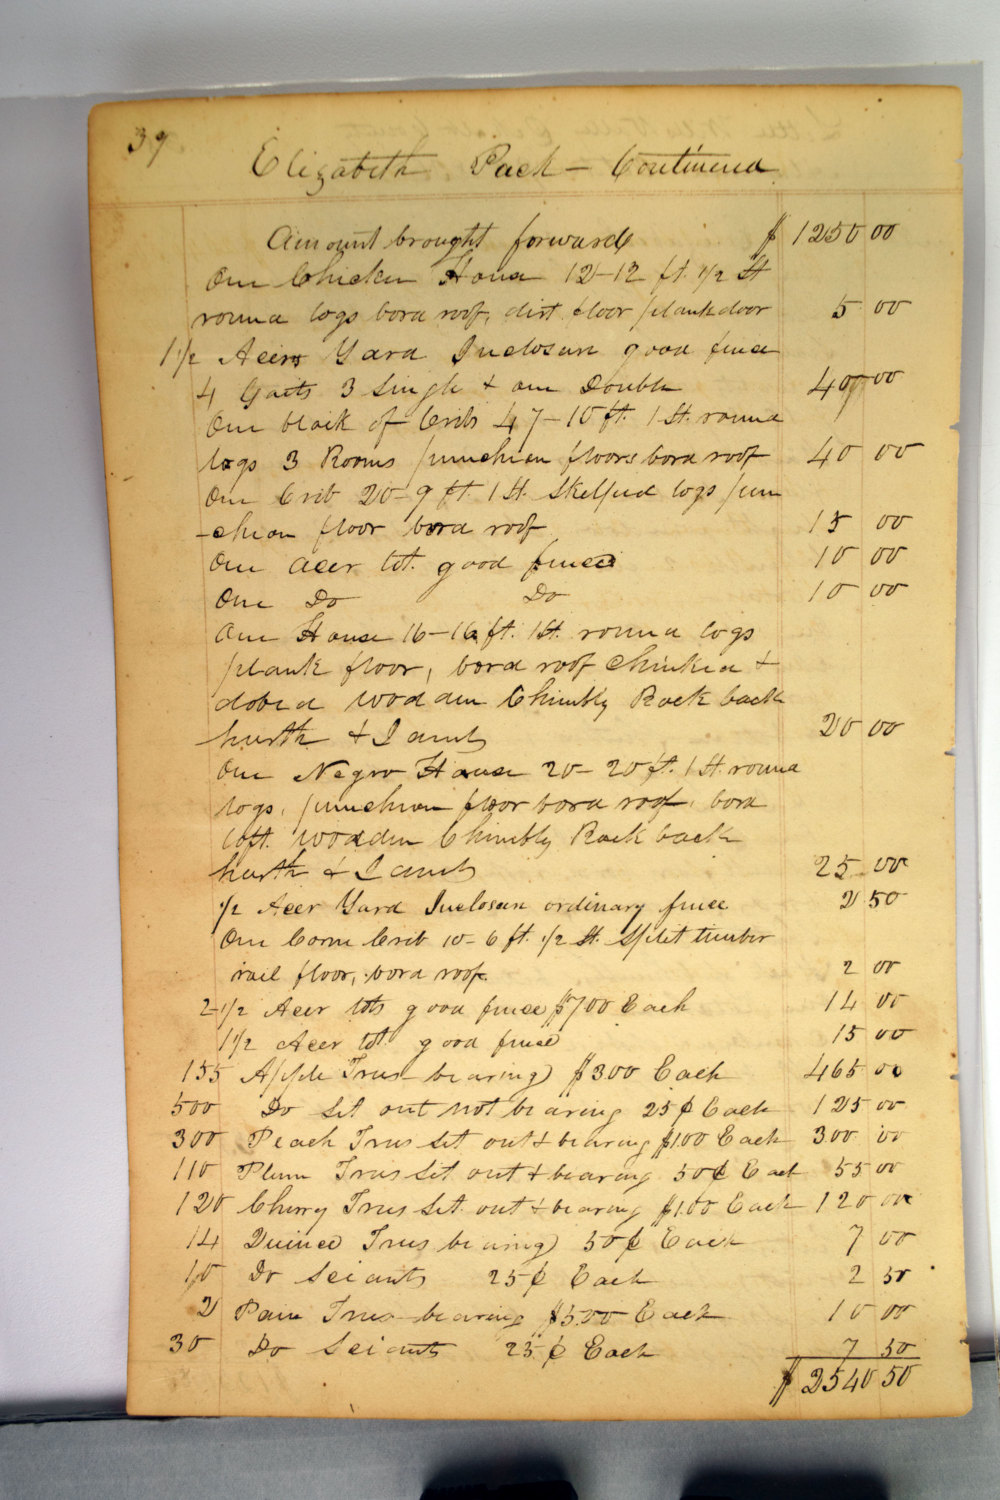 39
Elizabeth Pack – Continued
Amount brought forward $ 1250 00
One Chicken House 12–12 ft. 1/2 St
round logs bord roof, dirt floor plank door 5 00
1 1/2 Acers Yard Inclosure good fence
4 Gaits 3 Single & one Double 40 00
One block of Cribs 47–10 ft. 1 St. round
logs 3 Rooms puncheon floors bord roof 40 00
One Crib 20–9 ft. 1 St. Skelped logs pun
-cheon floor bord roof 15 00
One Acer lot. good fence 10 00
One Do Do 10 00
One House 16–16 ft. 1 St. round logs
plank floor, bord roof Chinked &
dobed wooden Chimbly Rock back
harth & Jambs 20 00
One Negro House 20–20 ft. 1 St. round
logs, puncheon floor bord roof, bord
loft. wooden Chimbly Rock back
harth & Jambs 25 00
1/2 Acer Yard Inclosure ordinary fence 2 50
One Corn Crib 10–6 ft. 1/2 St. Split timber
rail floor, bord roof. 2 00
2–1/2 Acer lots good fence $7 00 Each 14 00
1 1/2 Acer lot good fence 15 00
155 Apple Trees bearing $3 00 Each 465 00
500 Do Set out not bearing 25 ¢ Each 125 00
300 Peach Trees Set out & bearing $1 00 Each 300 00
110 Plum Trees Set out & bearing 50 ¢ Each 55 00
120 Cherry Trees Set out & bearing $1.00 Each 120 00
14 Quince Trees bearing 50 ¢ Each 7 00
10 Do Scients 25 ¢ Each 2 50
2 Pare Trees bearing $5.00 Each 10 00
30 Do Scients 25 ¢ Each 7 50
$ 2540 50